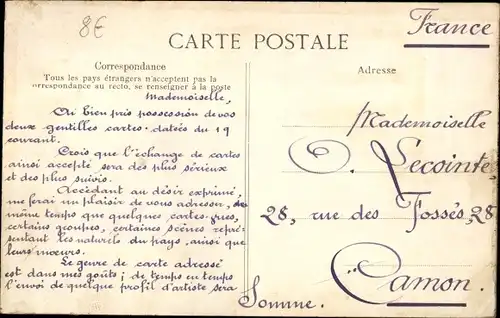 8€
France
CARTE POSTALE
Correspondance
Tous les pays étrangers n'acceptent pas la
correspondance au recto, se renseigner à la poste
Adresse
Mademoiselle,
Ai bien pris possession de vos
deux gentilles cartes datées du 19
courant.
Crois que l'échange de cartes
ainsi accepté sera des plus sérieux
et des plus suivis.
Accédant au désir exprimé,
me ferai un plaisir de vous adresser, en
même temps que quelques cartes-vues,
certains groupes, certaines scènes repré-
sentant les naturels du pays, ainsi que
leurs mœurs.
Le genre de carte adressé
est dans mes goûts; de temps en temps
l'envoi de quelque profil d'artiste sera
Mademoiselle
O. Lecointe,
28, rue des Fossés, 28
"Camon."
Somme.